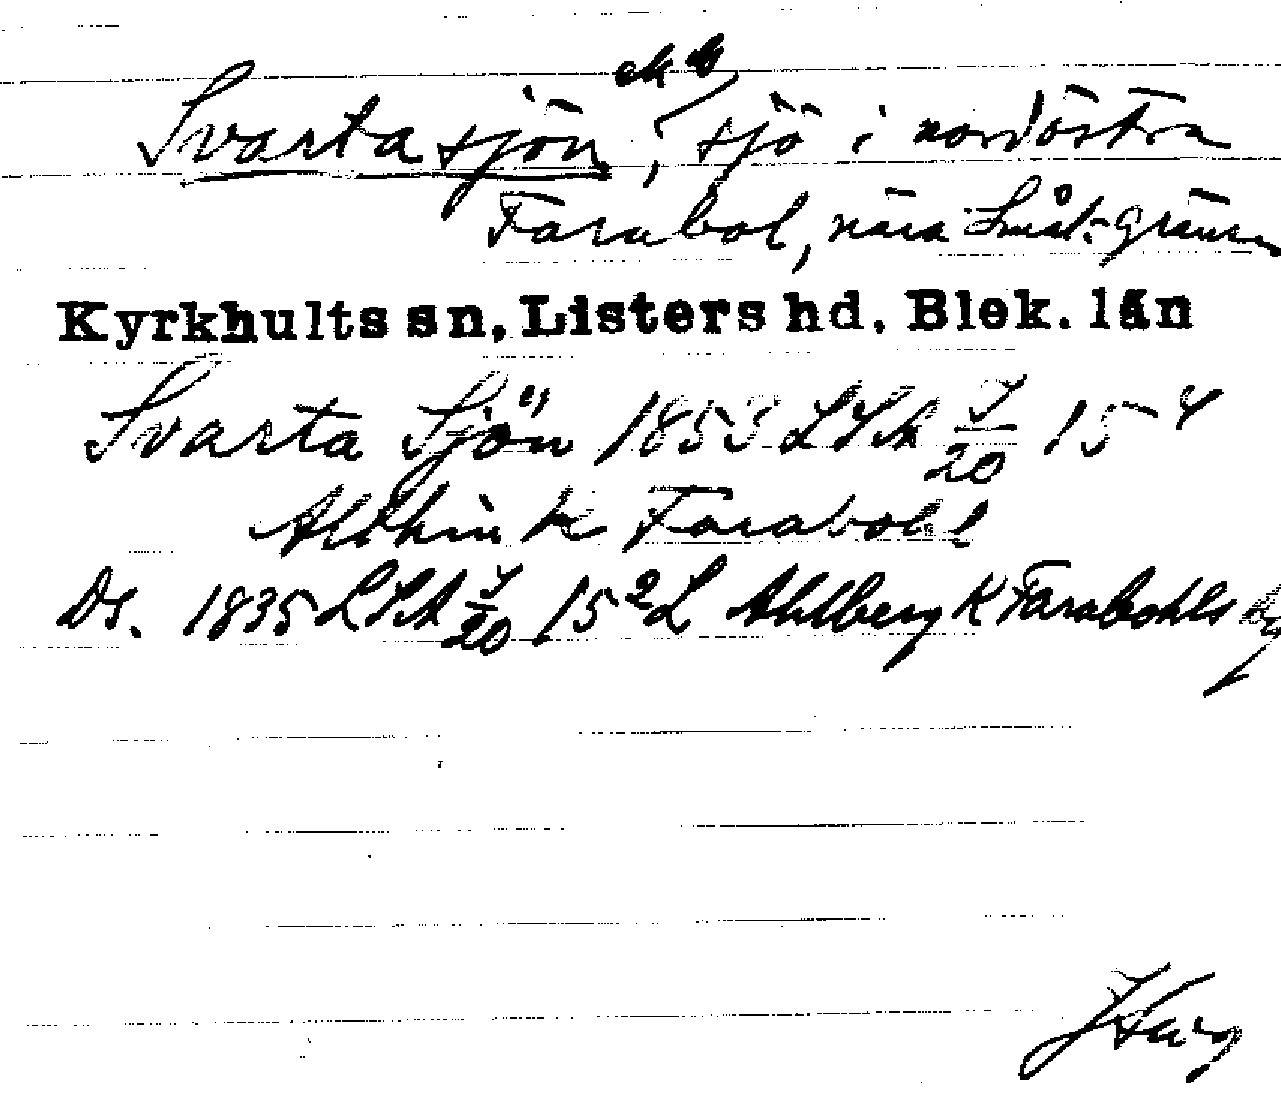 ek b
Svarta sjön, sjö i nordöstra
Farabol, nära Smål. gränsen
Kyrkhults sn, Listers hd. Blek. län
Svarta Sjön 1853 LSA J/20 15 4
K Farabohl
Ds. 1835 LSA J/20 15 2 L Ahlberg K Farabohls